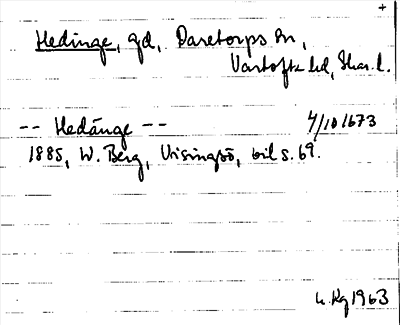 +
Hedinge, gd, Daretorps sn,
Vartofta hd, Skar. l.
-- Hedänge -- 4/10 1673
1885, W. Berg, Visingsö, bil s. 69.
L. Kg 1963